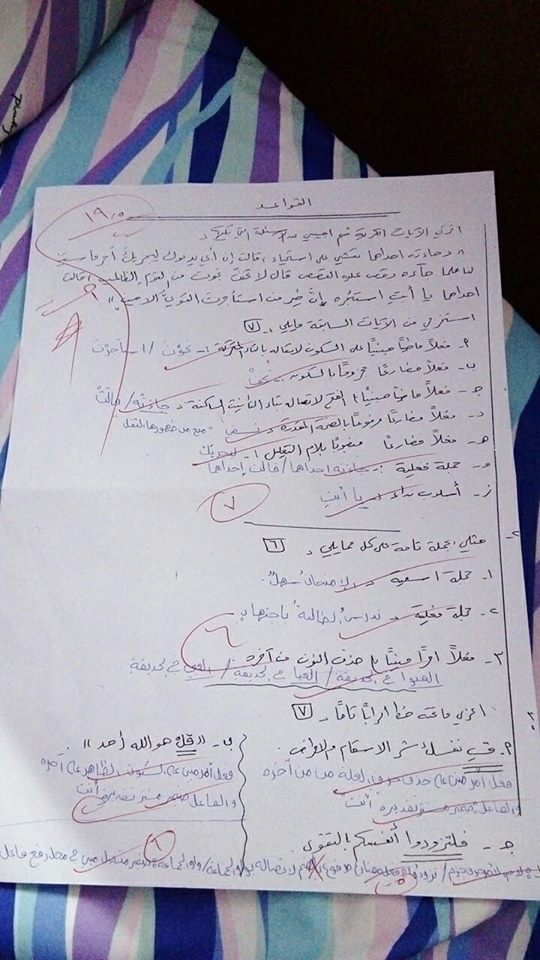 القواعد
١٩,٥
اقرئي الآيات القرآنية ثم أجيبي عن الأسئلة التي تليها :
" فجاءته إحداهما تمشي على استحياء ، قالت إن أبي يدعوك ليجزيك أجر ما سقيت
لنا فلما جاءه وقصّ عليه القصص قال لا تخف نجوت من القوم الظالمين ، قالت
إحداهما يا أبتِ استئجره إنّ خير من استأجرت القويّ الأمين "
استخرجي من الآيات السابقة ما يلي : ٧
أ- فعلاً ماضياً مبنياً على السكون لاتصاله بالتاء المتحركة :- نجوْتَ / استأجرْتَ
ب- فعلاً مضارعاً مجزوماً بالسكون :- تخفْ
ج- فعلاً ماضياً مبنياً على الفتح لاتصاله بتاء التأنيث الساكنة :- جاءَتْه / قالَتْ
د- فعلاً مضارعاً مرفوعاً بالضمة المقدرة :- تمشي " منع من ظهورها الثقل
هـ- فعلاً مضارعاً منصوباً بلام التعليل :- ليجزيَك
و- جملة فعلية :- جاءته إحداهما / قالت إحداهما
ز- أسلوب نداء :- يا أبتِ
٧
٢- مثلي بجملة تامة على كل مما يلي : ٦
١- جملة اسمية :- الامتحانُ سهلٌ .
٢- جملة فعلية :- تدرسُ الطالبةُ باجتهادٍ
٣- فعلاً أمراً مبنياً على حذف النون من آخره
العبوا في الحديقة / العبا في الحديقة / العبي في الحديقة
٦
٣- أعربي ما تحته خط إعراباً تاماً :- ٧
أ- قِ نفسك شر الأسقام والأمراض
فعل أمر مبني على حذف حرف العلة من آخره
والفاعل ضمير مستتر تقديره أنت
ب- " قل هو الله أحد " .
فعل أمر مبني على السكون الظاهر على آخره
والفاعل ضمير مستتر تقديره أنت
ج- فلتزودوا أنفسكم بالتقوى
لاتصاله بواو الجماعة / واو الجماعة : ضمير متصل مبني في محل رفع فاعل